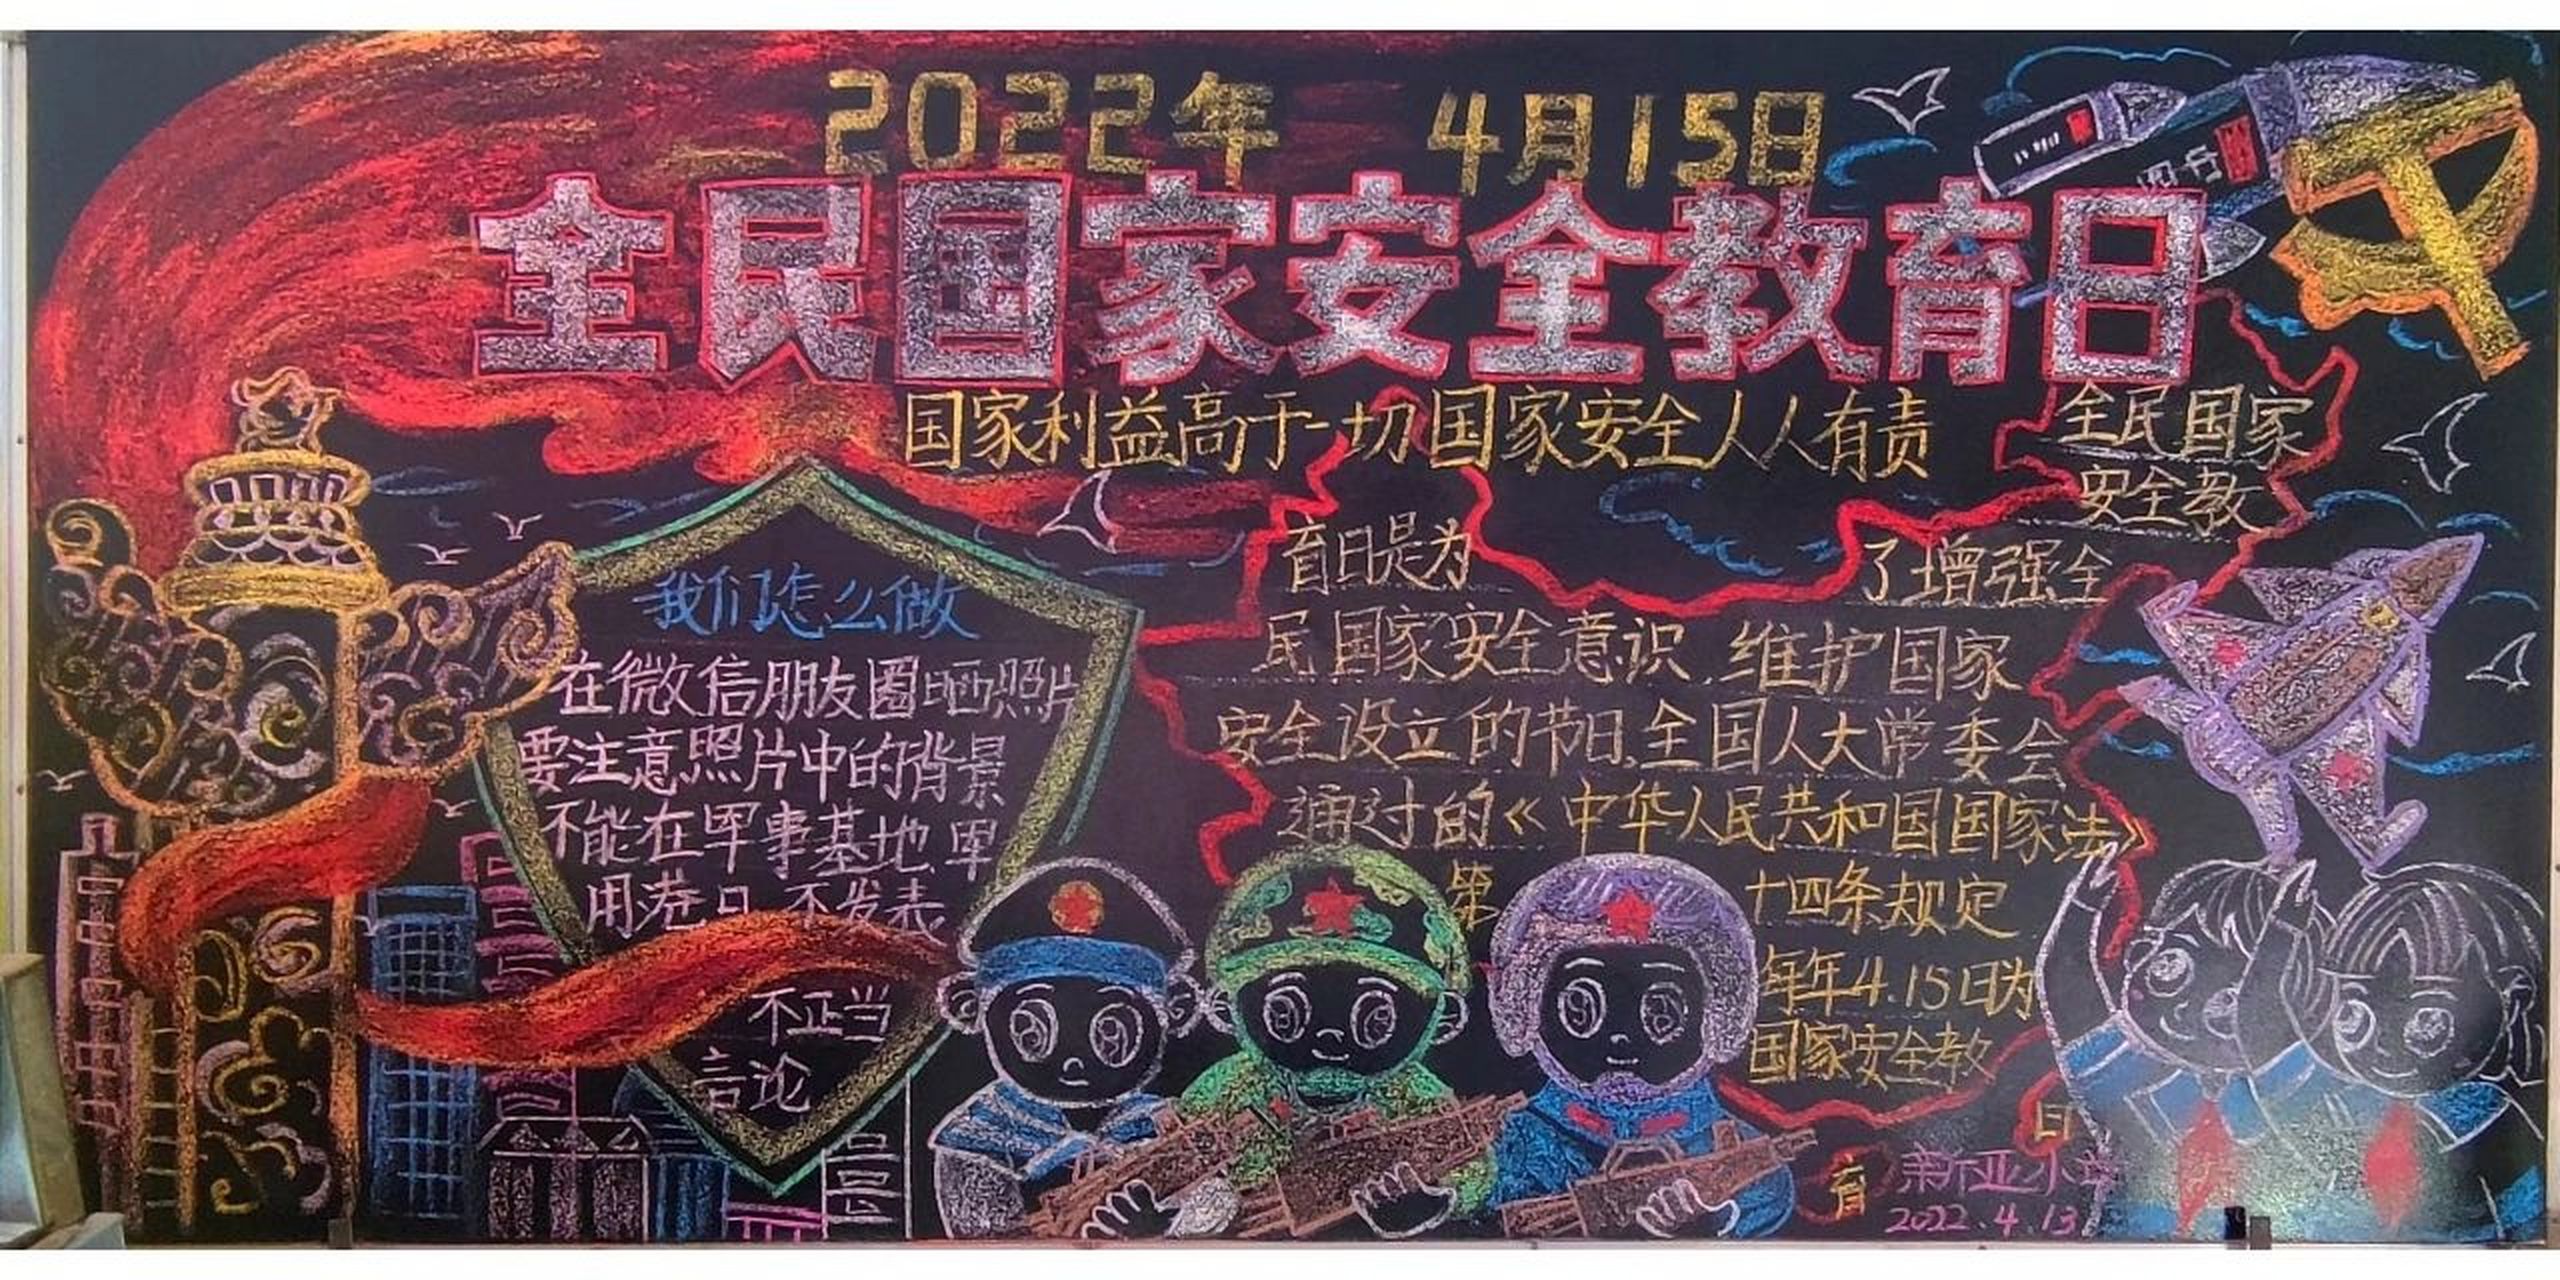 2022年 4月15日
全民国家安全教育日
国家利益高于一切国家安全人人有责
我们怎么做
在微信朋友圈晒照片
要注意照片中的背景
不能在军事基地、军
用港口 不发表
不正当
言论
全民国家
安全教
育日是为 了增强全
民国家安全意识,维护国家
安全设立的节日,全国人大常委会
通过的《中华人民共和国国家法》
第 十四条规定
每年4.15日为
国家安全教
育 日
新亚小学
2022.4.13